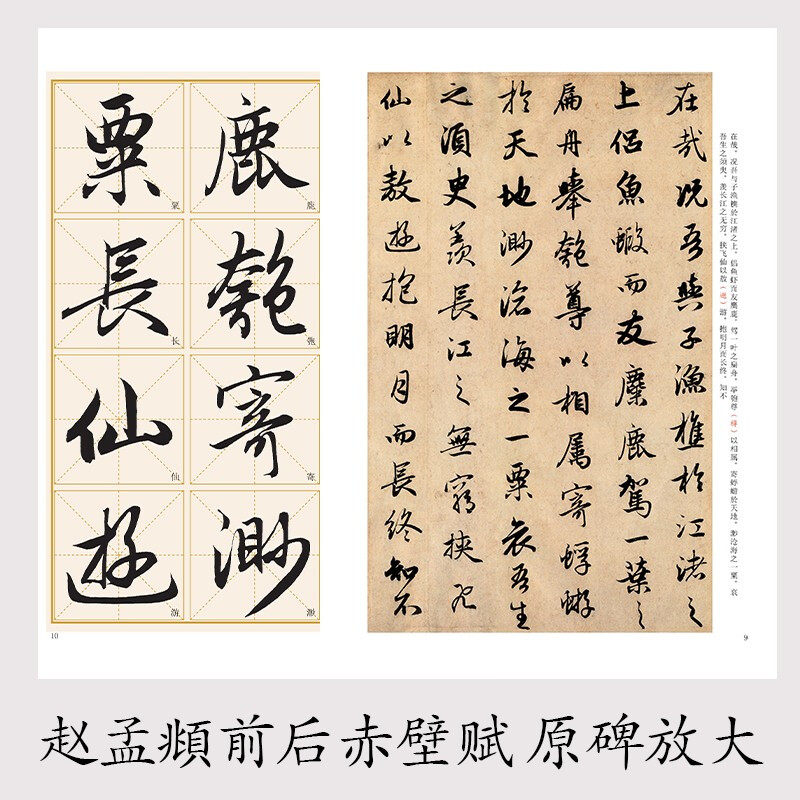 在哉，况吾与子渔樵於江渚之上，侣鱼虾而友麋鹿，驾一叶之扁舟，举匏尊（樽）以相属，寄蜉蝣於天地，渺沧海之一粟，哀
吾生之须臾，羡长江之无穷，挟飞仙以敖（遨）游，抱明月而长终，知不
在哉况吾與子漁樵於江渚之
上侶魚蝦而友麋鹿駕一葉之
扁舟舉匏尊以相属寄蜉蝣
於天地渺滄海之一粟哀吾生
之須臾羨長江之無窮挾飛
仙以敖遊抱明月而長終知不
9
鹿匏寄渺
鹿
匏
寄
渺
粟長仙遊
粟
长
仙
游
10
赵孟頫前后赤壁赋 原碑放大